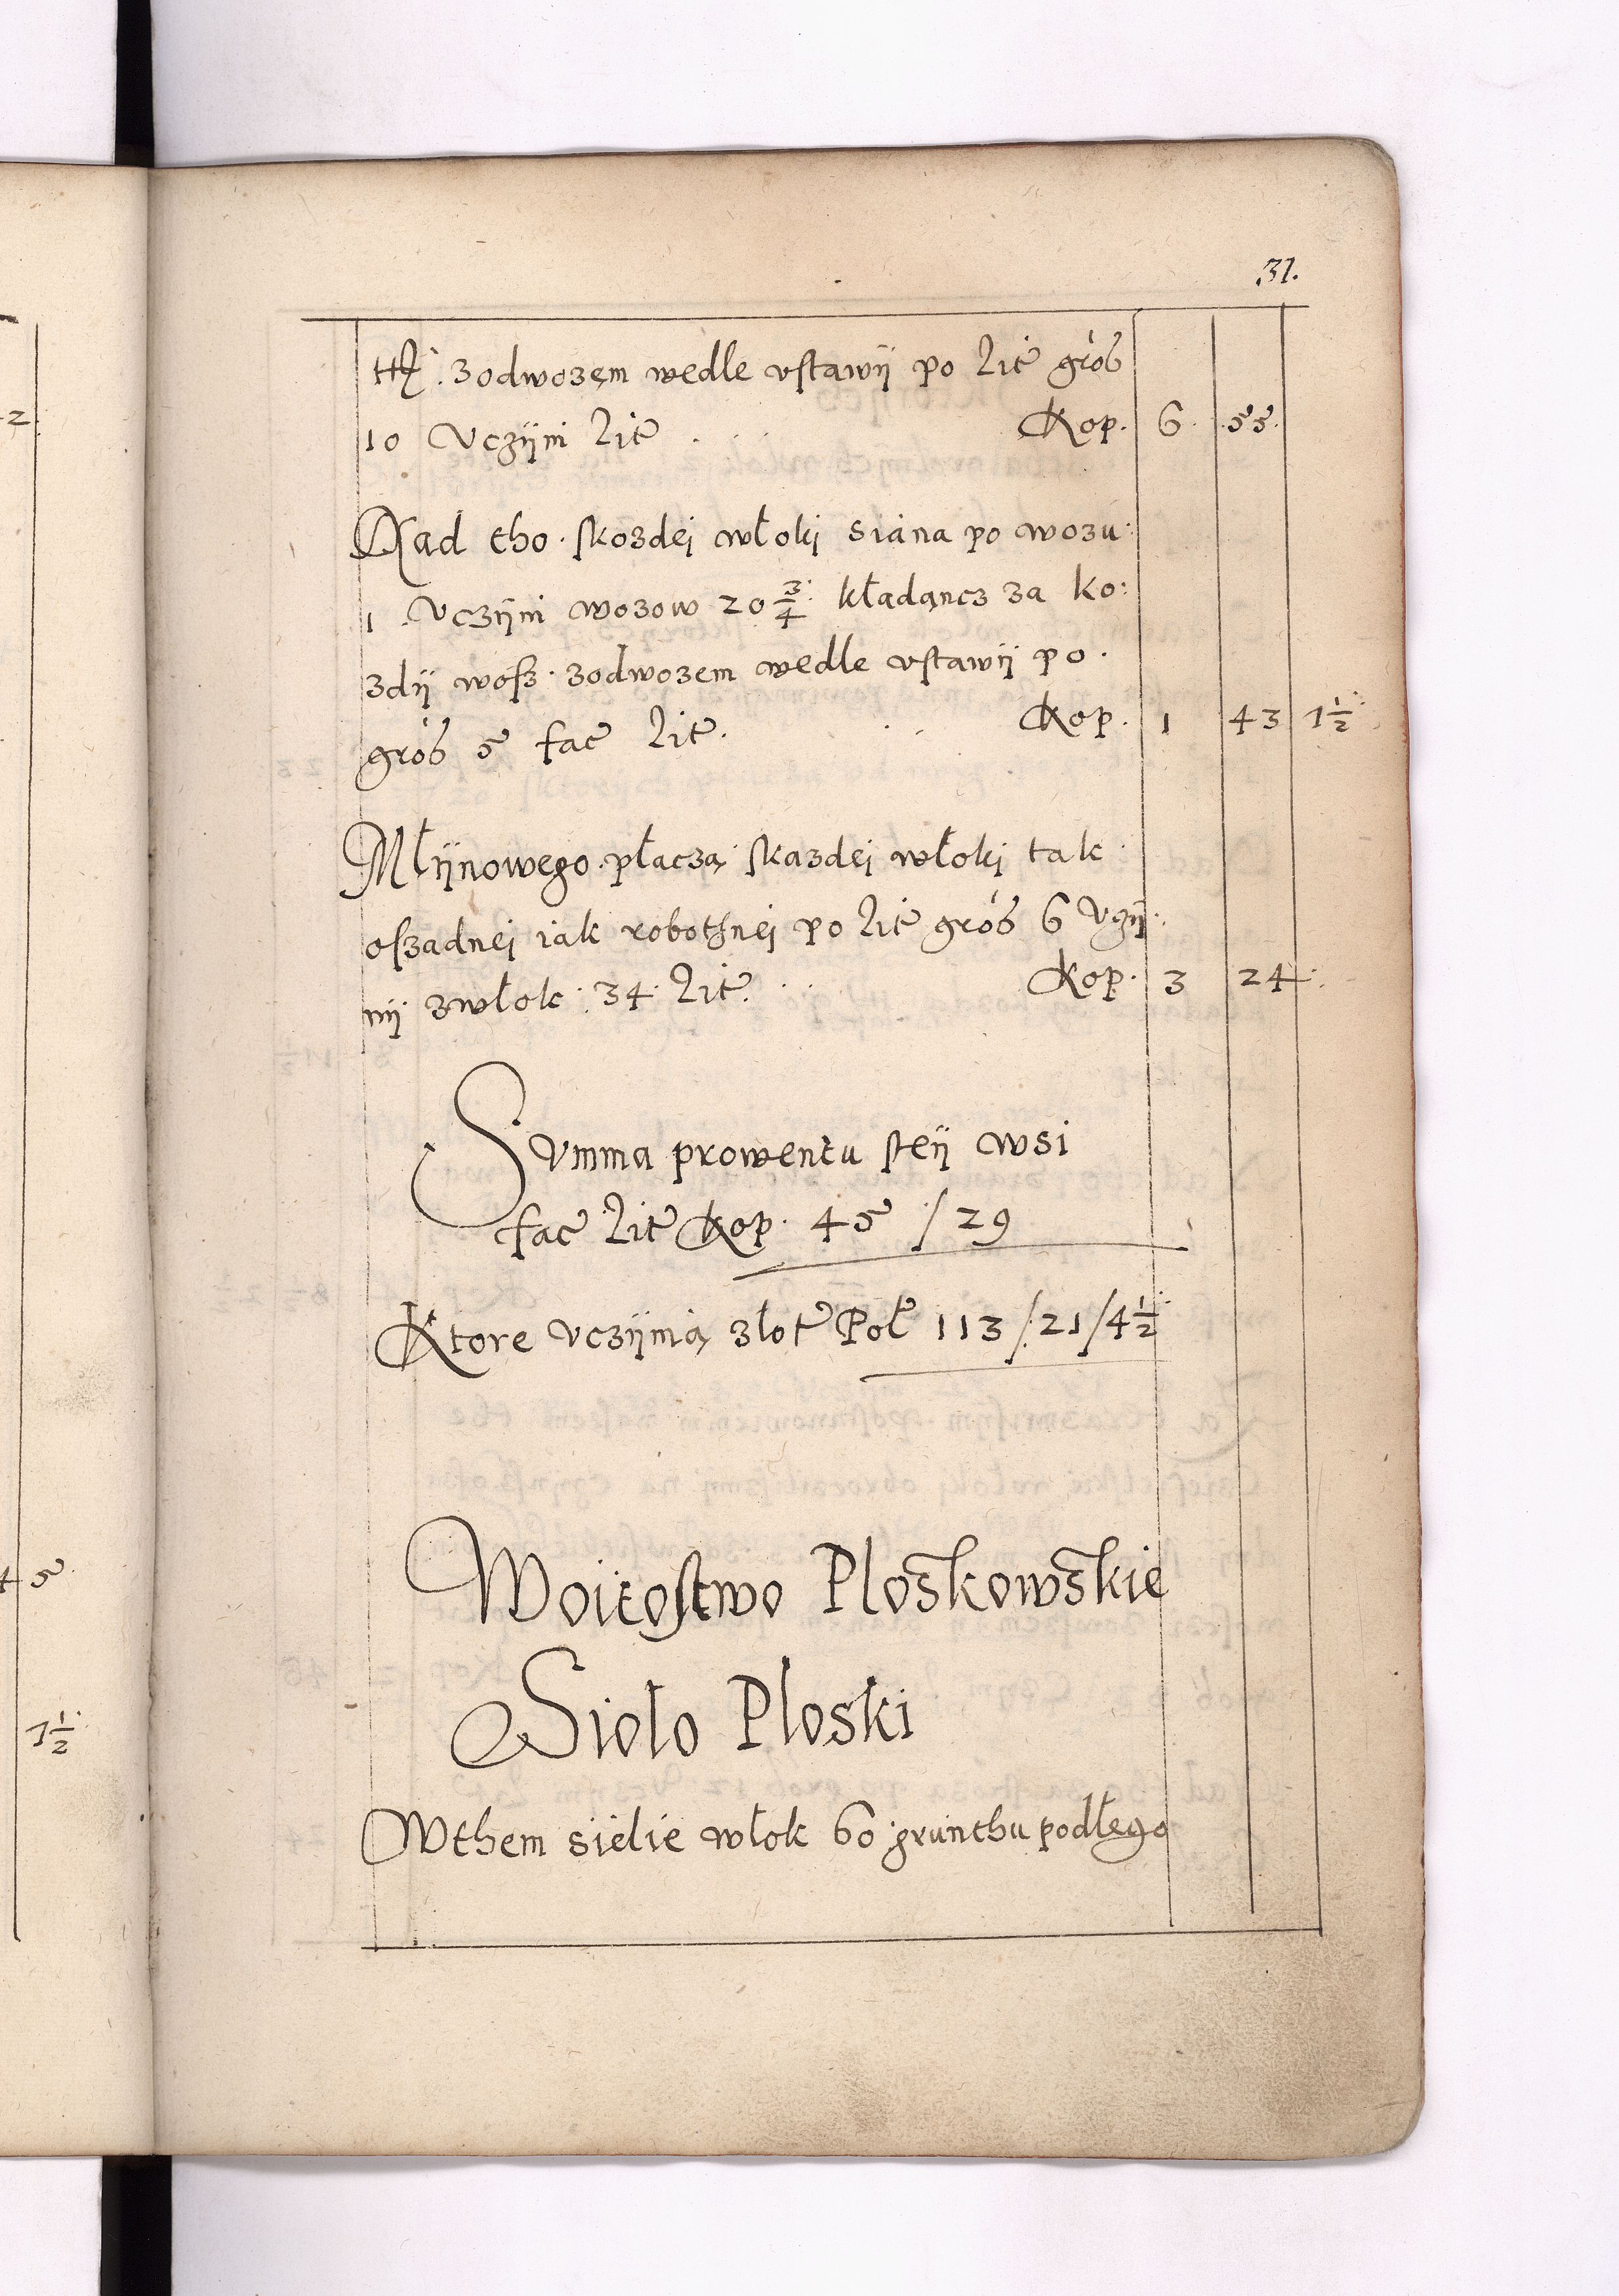 31.
zodwozem wedle vstawÿ po lit̃ gros
10 Vczÿni lit̃ Kop. 6 55
Nad tho skozdei włoki siana po wozu
1 Vczÿni wozow 20 3/4 kładancz za ko:
zdÿ wosz zodwozem wedle vstawÿ po
gros 5 fac̃ lit̃ Kop. 1 43 7 1/2
Młÿnowego płaczą skazdei włoki tak
oszadnei iak robothnei po lit̃ gros 6 Vczÿ
nÿ zwłok 34 lit̃ Kop. 3 24
Summa prowentu steÿ wsi
fac̃ lit̃ Kop. 45 / 29
Ktore vczÿnią złot̃ Pol̃ 113 / 21 / 4 1/2
Woitostwo Ploskowskie
Sioło Ploski
Wthem sielie włok 60 grunthu podłego
2
45
7 1/2